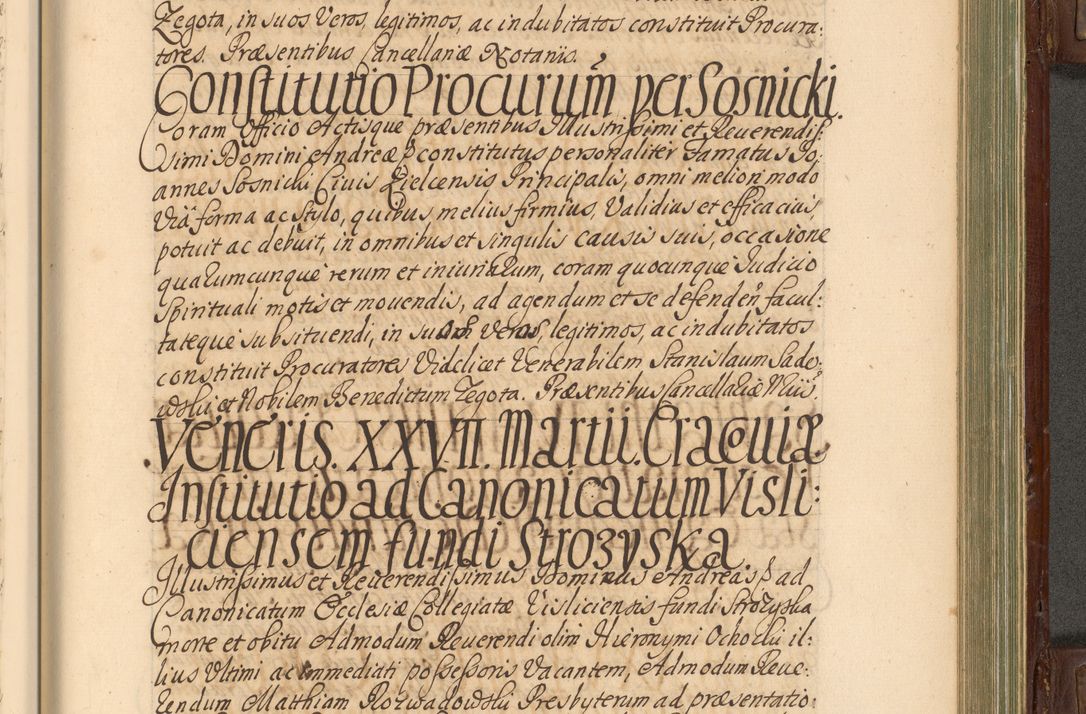 Zegota, in suos Veros, legitimos, ac indubitatos constituit Procura:
tores. Præsentibus Cancellariæ Notariis.
Constitutio Procurum per Sosnicki.
Coram Officio Actisque præsentibus Illustrissimi et Reuerendis:
simi Domini Andreæ p constitutus personaliter Famatus Jo:
annes Sosnicki Ciuis Kielcensis Principalis, omni meliori modo
Via forma ac Stylo, quibus, melius firmius, Validius et efficacius,
potuit ac debuit, in omnibus et singulis causis suis, occasione
quarumcunque rerum et iniuriarum, coram quocunque Judicio
Spirituali motis et mouendis, ad agendum et se defenden facul:
tateque subsituendi, in suos Veros, legitimos, ac indubitatos
constituit Procuratores Videlicet Venerabilem Stanislaum Sado:
wski et Nobilem Benedictum Zegota. Præsentibus Cancellariæ Nriis.
Veneris. XXVII. Martii. Cracouiæ
Institutio ad Canonicatum Visli:
ciensem fundi Strozyska.
Illustrissimus et Reuerendissimus Dominus Andreas p ad
Canonicatum Ecclesiæ Collegiatæ Visliciensis fundi Strozyska
morte et obitu Admodum Reuerendi olim Hieronymi Ochocki il:
lius Vltimi ac immediati possessoris Vacantem, Admodum Reue:
rendum Matthiam Rozwadowski Presbyterum ad præsentatio: